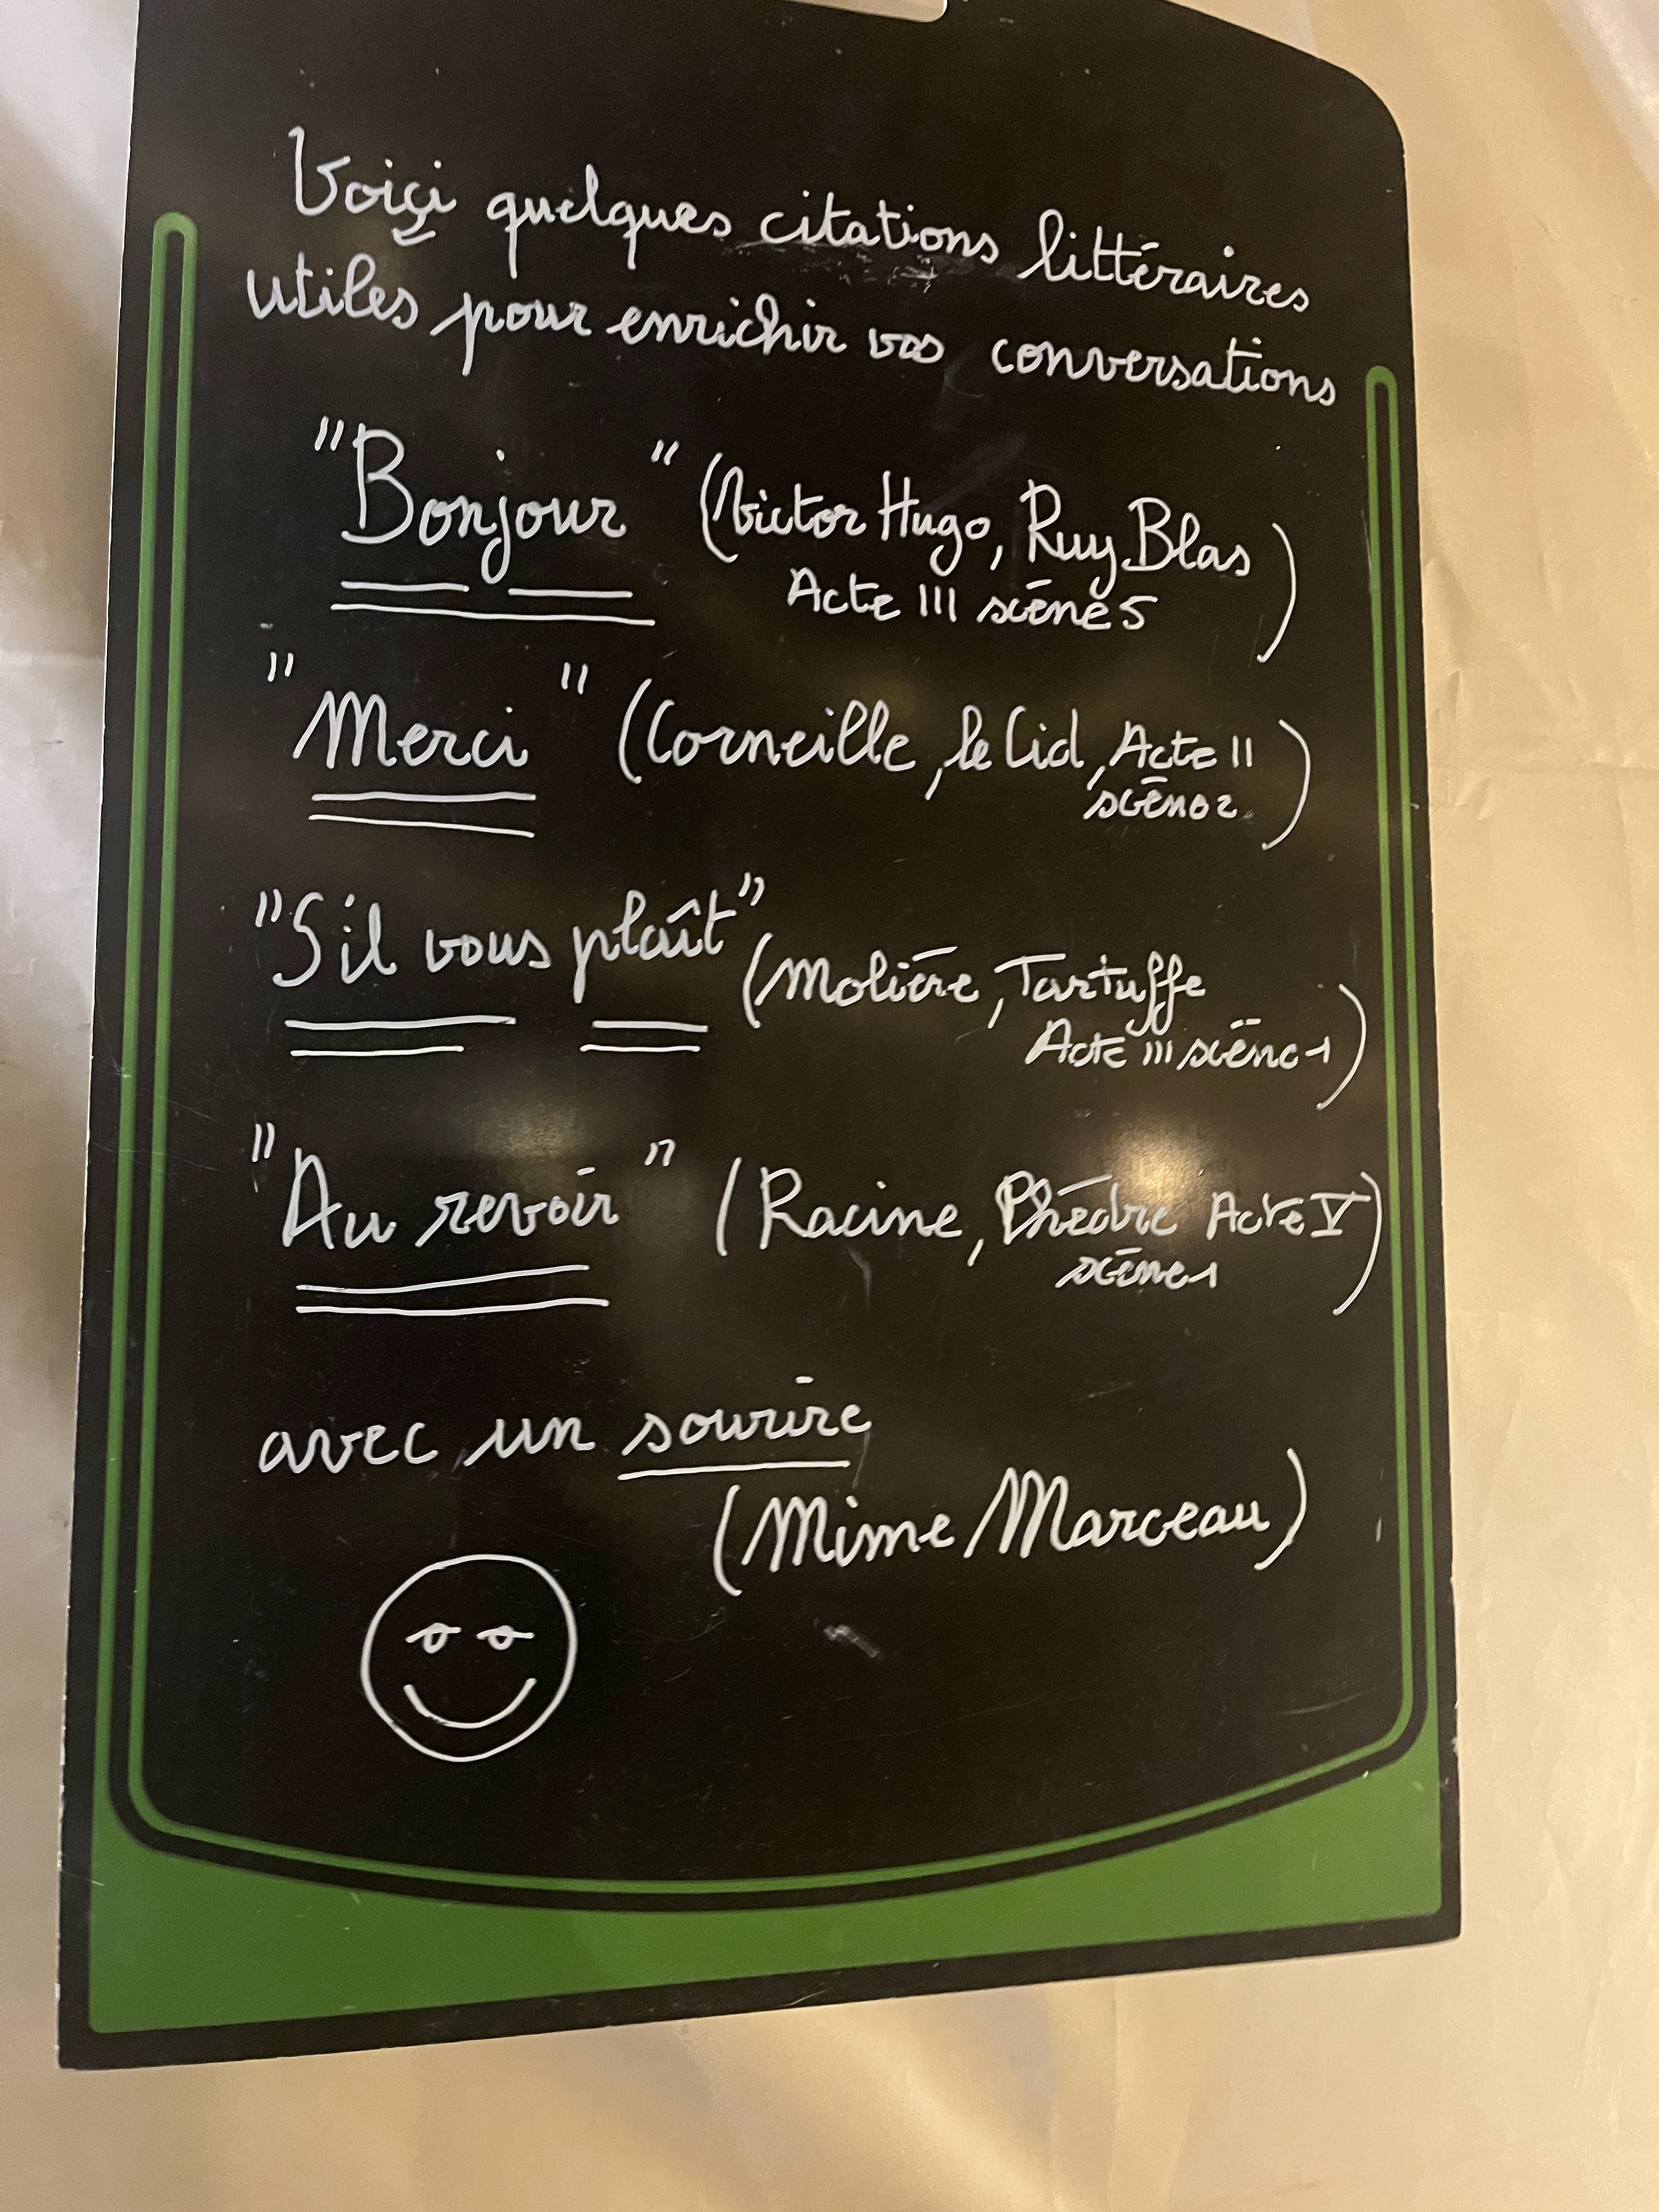 Voiçi quelques citations littéraires
utiles pour enrichir vos conversations
"Bonjour" (Victor Hugo, Ruy Blas
Acte III scène 5)
"Merci" (Corneille, le Cid, Acte II
scène 2)
"S'il vous plaît"
(Molière, Tartuffe
Acte III scène 1)
"Au revoir" (Racine, Phèdre Acte V
scène 1)
avec un sourire
(Mime Marceau)